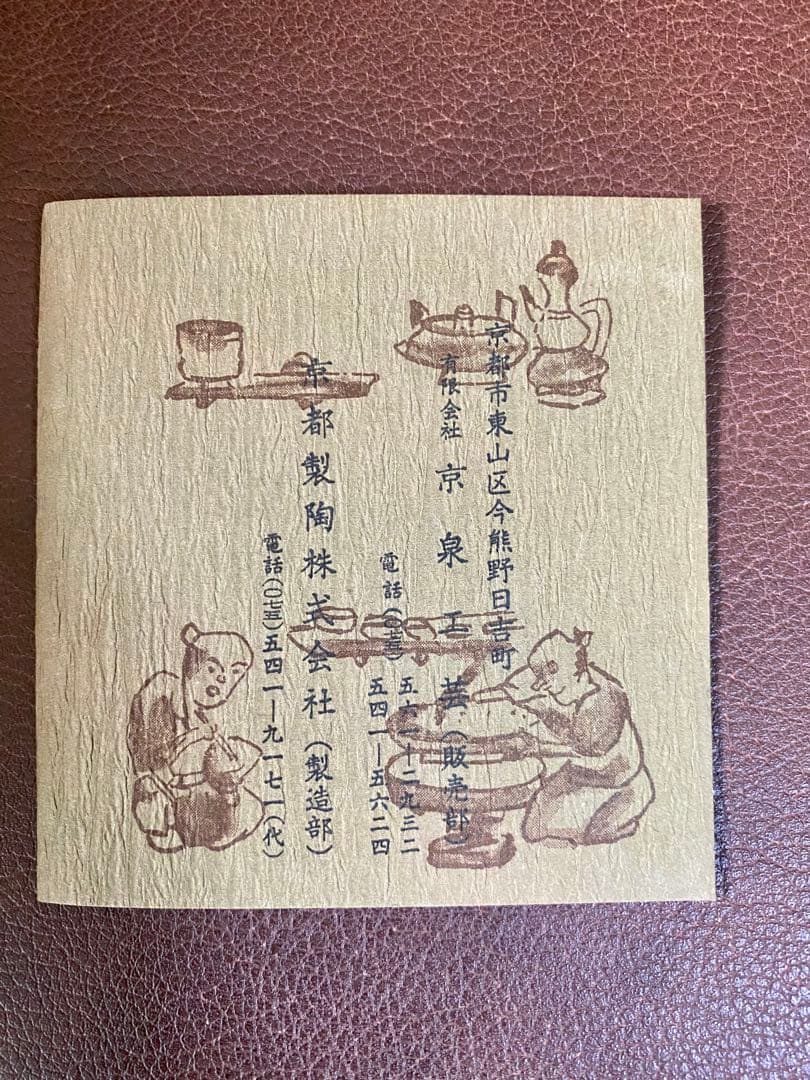 京都市東山区今熊野日吉町
有限会社 京泉工芸（販売部）
電話（〇七五）五六一ー二九三二
五四一ー五六二四
京都製陶株式会社（製造部）
電話（〇七五）五四一ー九一七一（代）